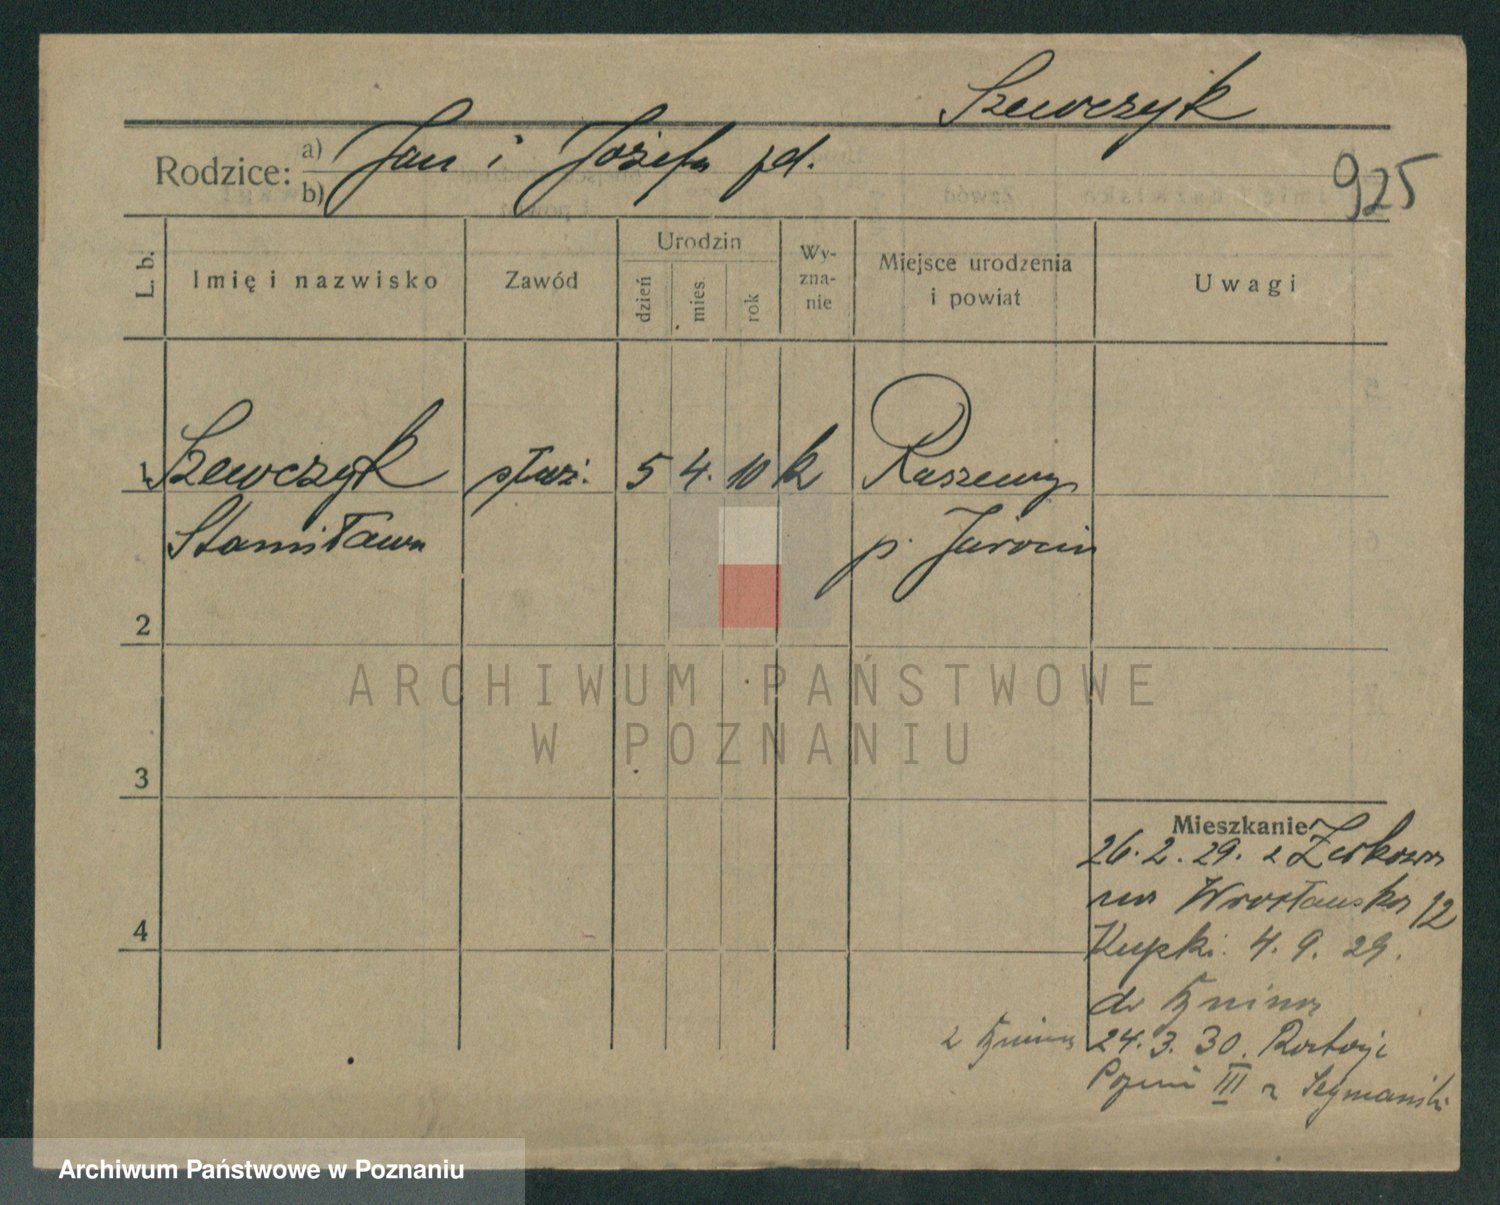 Szewczyk
Rodzice: a) b) Jan i Józefa jd.
925
L. b.
Imię i nazwisko
Zawód
Urodzin
dzień
mies.
rok
Wy-
zna-
nie
Miejsce urodzenia
i powiat
Uwagi
1 Szewczyk służ. 5 4. 10 k Raszewy
Stanisława p. Jarocin
2
ARCHIWUM PAŃSTWOWE
W POZNANIU
3
Mieszkanie
26. 2. 29. z Żerkowa
na Wrocławska 12
4
4. 9. 29.
do Żnina
z Żnina 24. 3. 30.
III Szymański
Archiwum Państwowe w Poznaniu